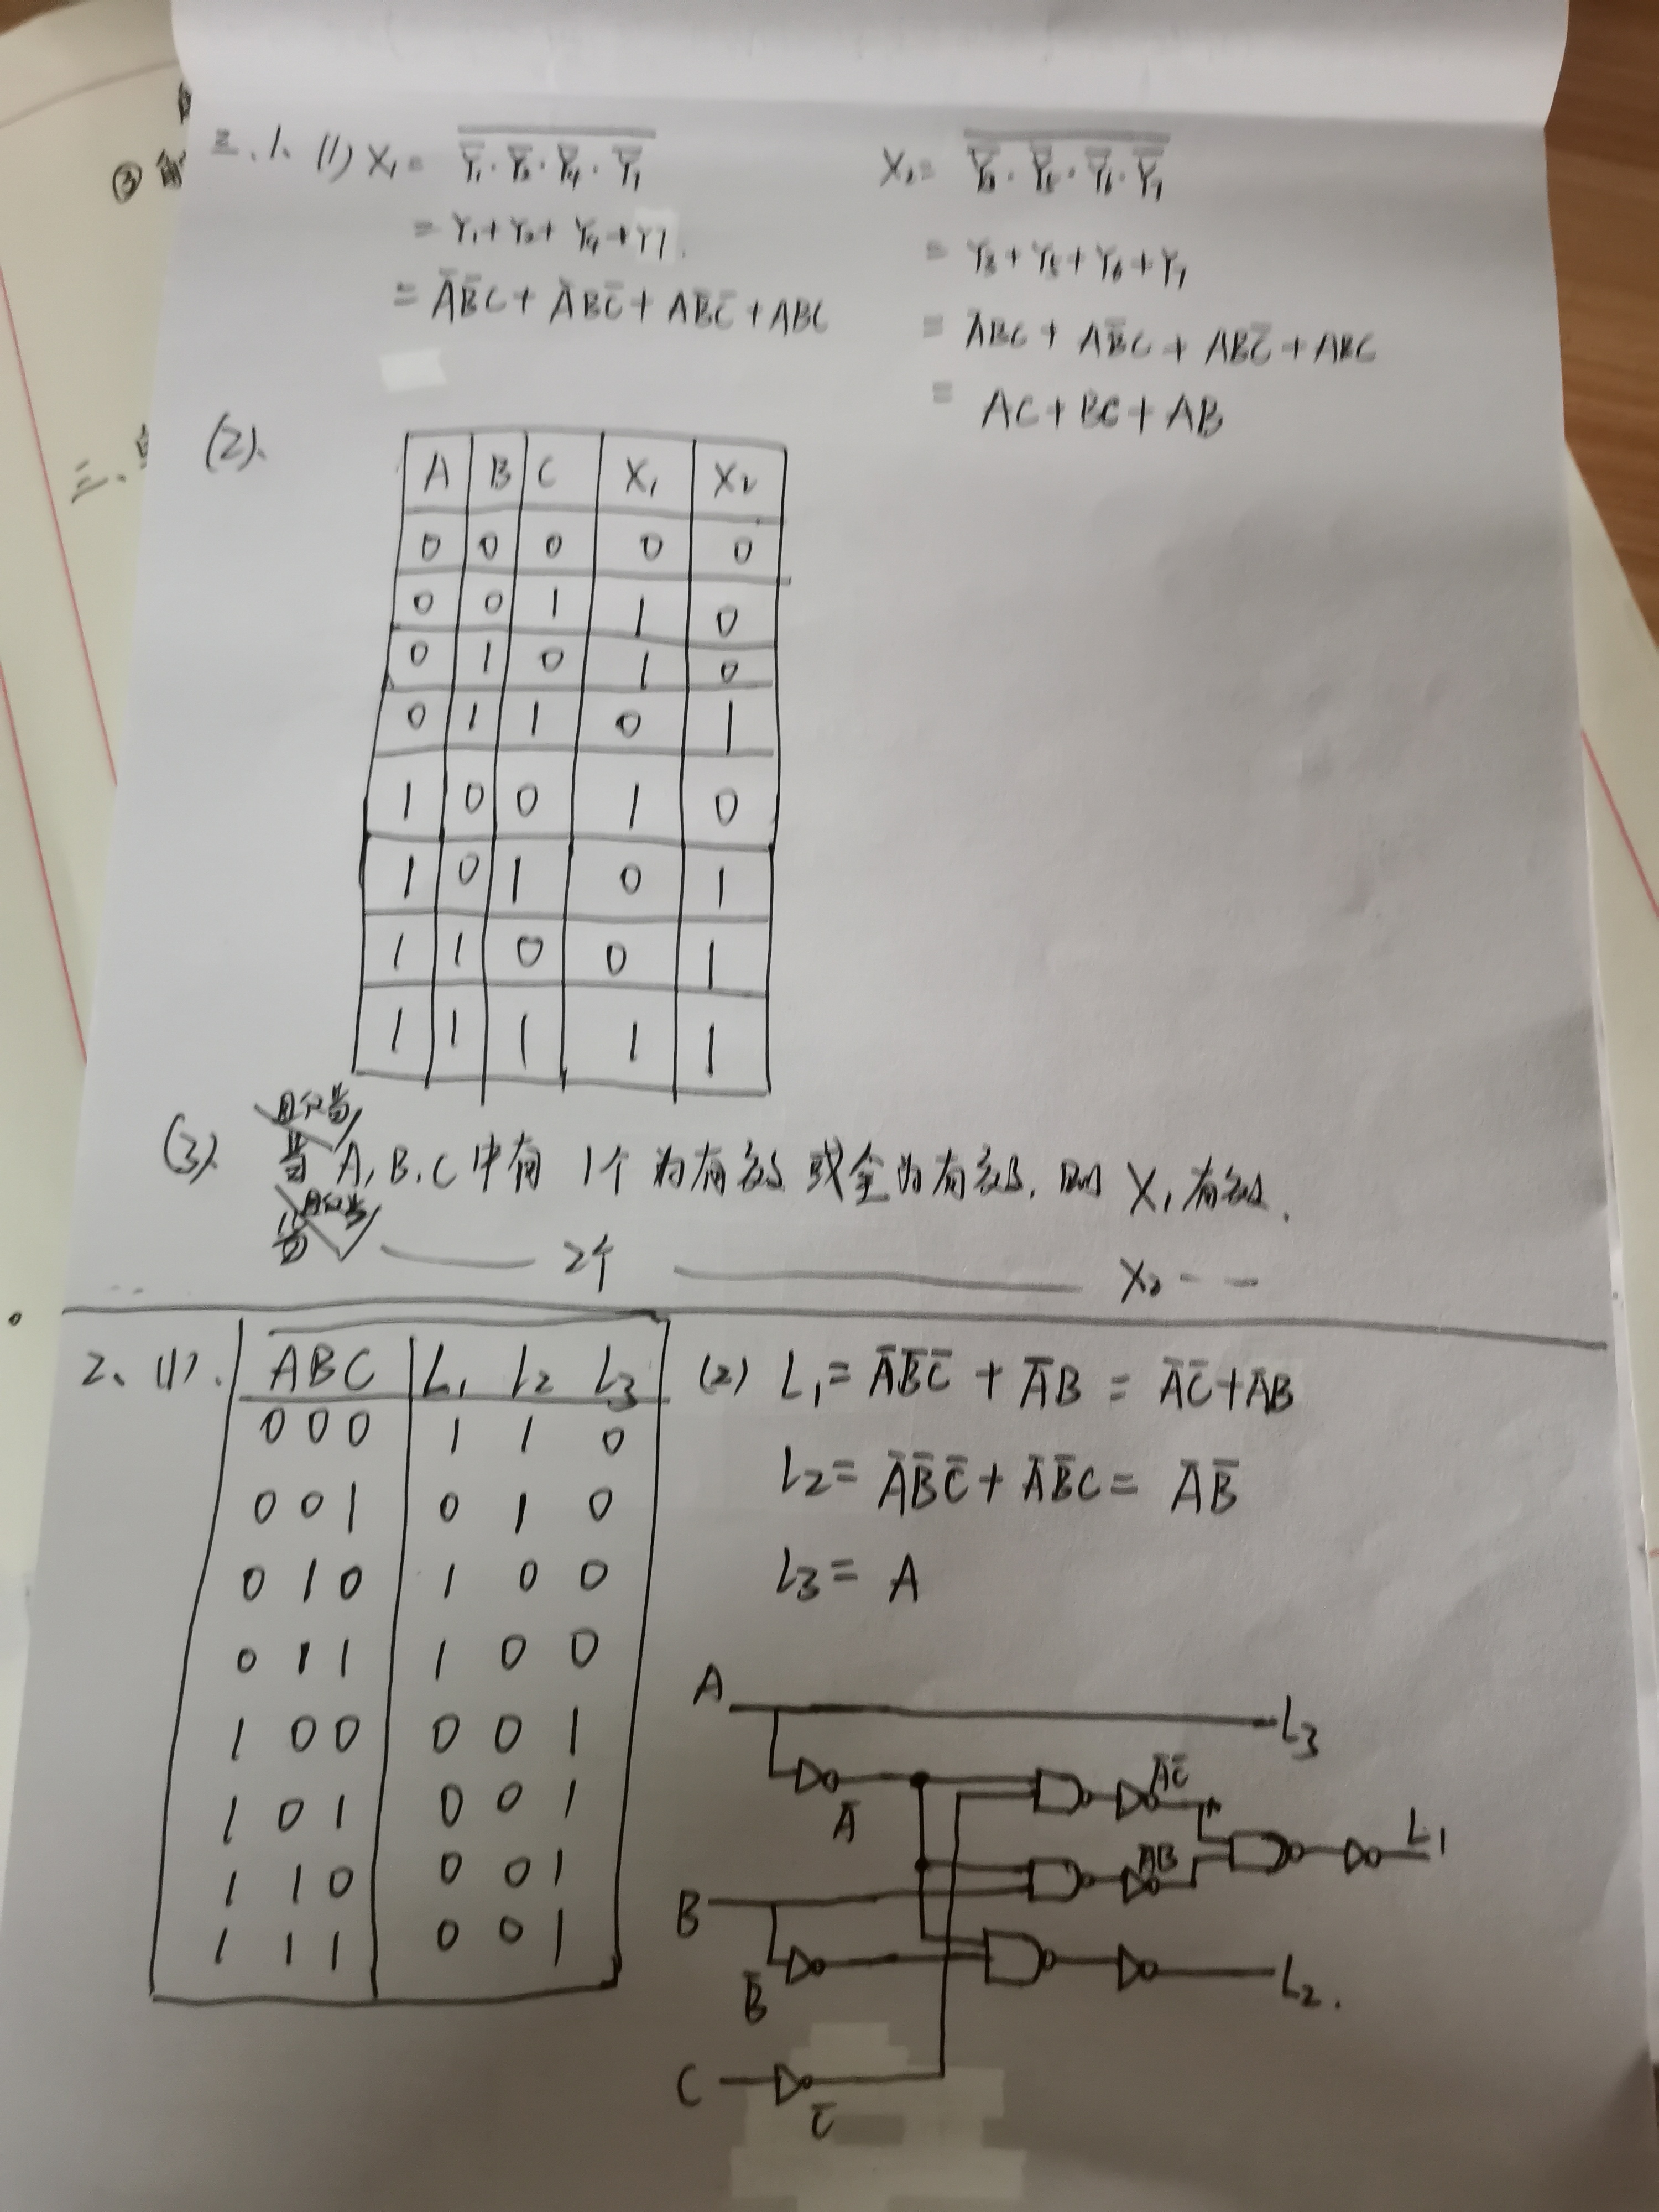 三、1、(1) X₁= \overline{Y̅₁·Y̅₂·Y̅₄·Y̅₇}
= Y₁+Y₂+Y₄+Y7.
= A̅B̅C+A̅BC̅+AB̅C̅+ABC
X₂= \overline{Y̅₃·Y̅₅·Y̅₆·Y̅₇}
= Y₃+Y₅+Y₆+Y₇
= A̅BC+AB̅C+ABC̅+ABC
= AC+BC+AB
(2).
A B C X₁ X₂
0 0 0 0 0
0 0 1 1 0
0 1 0 1 0
0 1 1 0 1
1 0 0 1 0
1 0 1 0 1
1 1 0 0 1
1 1 1 1 1
且仅当
(3). 当 A,B,C中有1个为有效或全为有效,则X₁有效.
且仅当
当 —— 2个 —— X₂ - -
2、(1).
ABC L₁ L2 L3
000 1 1 0
001 0 1 0
010 1 0 0
011 1 0 0
100 0 0 1
101 0 0 1
110 0 0 1
111 0 0 1
(2) L₁= A̅B̅C̅+A̅B = A̅C̅+A̅B
L2= A̅B̅C̅+A̅B̅C= A̅B̅
L3= A
A L3
A̅ A̅C̅
L1
B A̅B
B̅ L2.
C C̅
③
三、